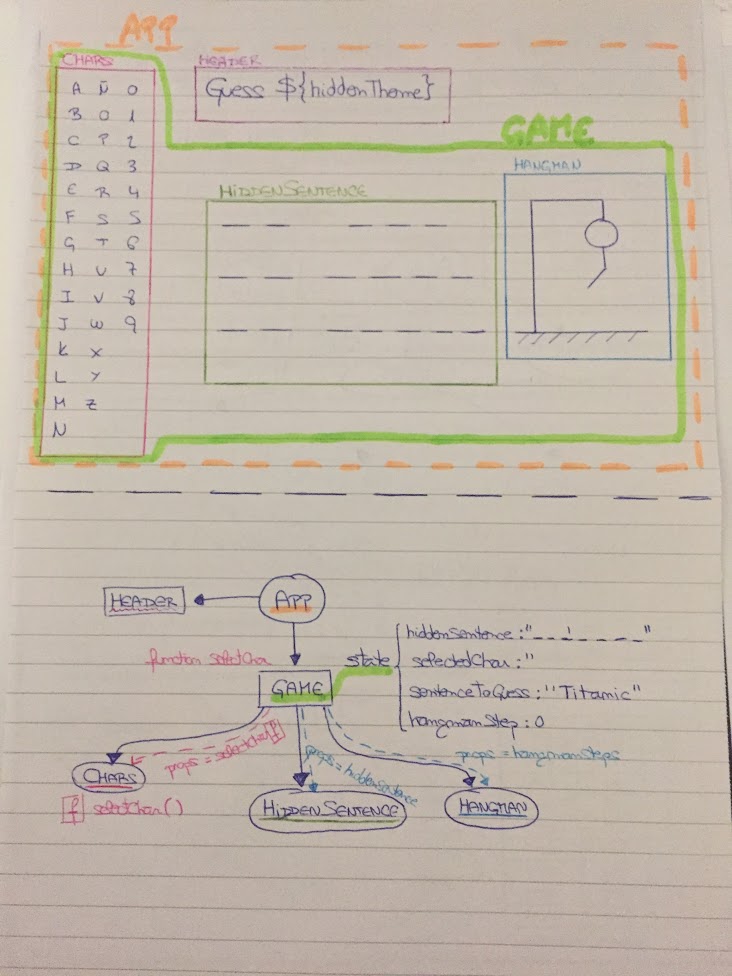 APP
CHARS
A Ñ 0
B O 1
C P 2
D Q 3
E R 4
F S 5
G T 6
H U 7
I V 8
J W 9
K X
L Y
M Z
N
HEADER
Guess ${hiddenTheme}
GAME
HANGMAN
HIDDENSENTENCE
HEADER
APP
function selectChar
GAME
state
hiddenSentence : "_ _ ' _ _ _ _"
selectedChar : "
sentenceToGuess : "Titanic"
hangmanStep : 0
props = selectChar f
props = hiddenSentence
props = hangmanSteps
CHARS
f selectChar()
HIDDENSENTENCE
HANGMAN